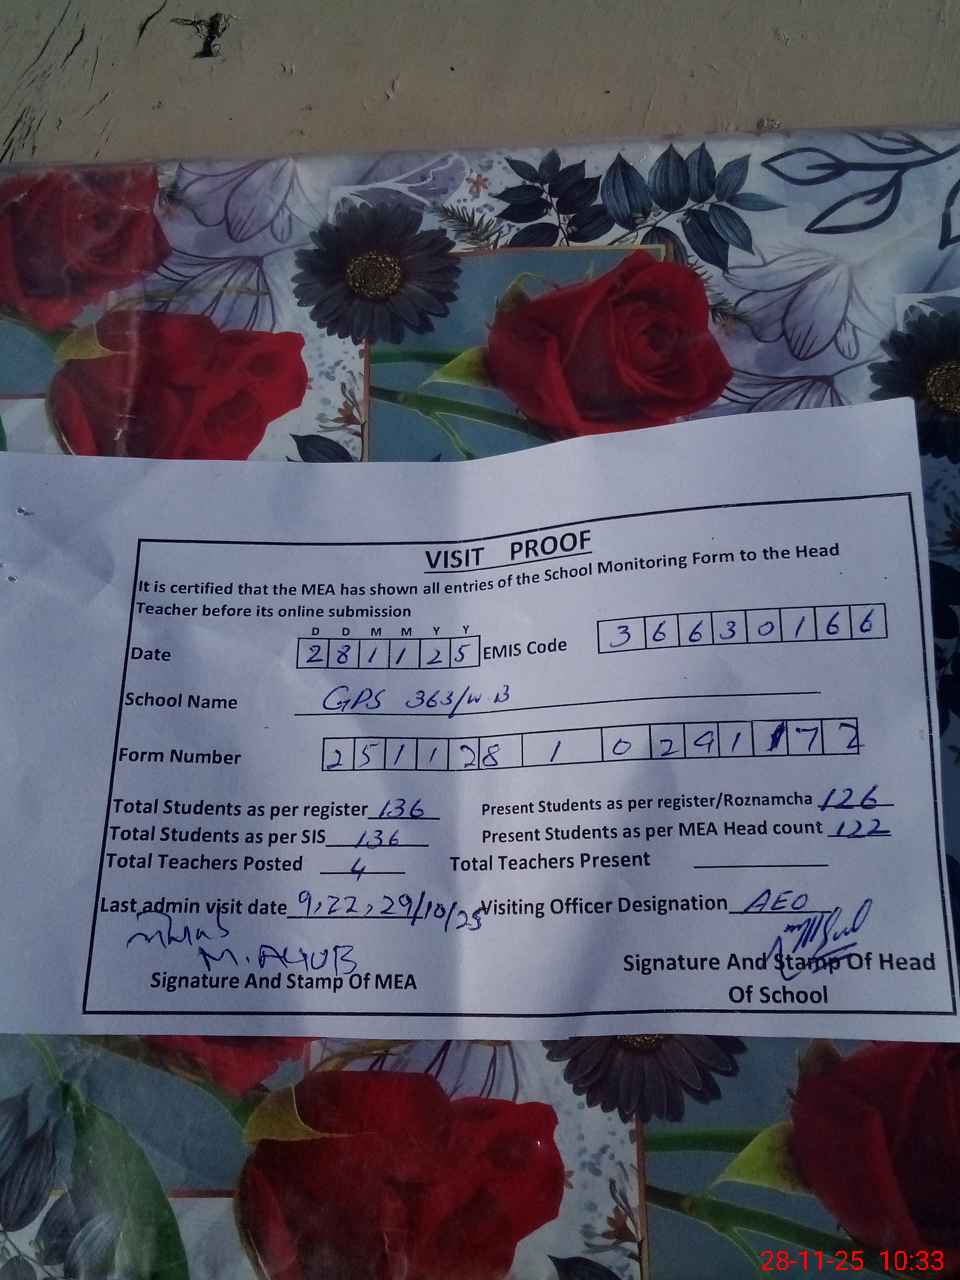 VISIT PROOF
It is certified that the MEA has shown all entries of the School Monitoring Form to the Head
Teacher before its online submission
D D M M Y Y
Date 2 8 1 1 2 5 EMIS Code 3 6 6 3 0 1 6 6
School Name GPS 363/W.B
Form Number 2 5 1 1 2 8 1 0 2 9 1 1 7 2
Total Students as per register 136 Present Students as per register/Roznamcha 126
Total Students as per SIS 136 Present Students as per MEA Head count 122
Total Teachers Posted 4 Total Teachers Present
Last admin visit date 9,22,29/10/25 Visiting Officer Designation AEO
M. AYUB
Signature And Stamp Of MEA Signature And Stamp Of Head
Of School
28-11-25 10:33